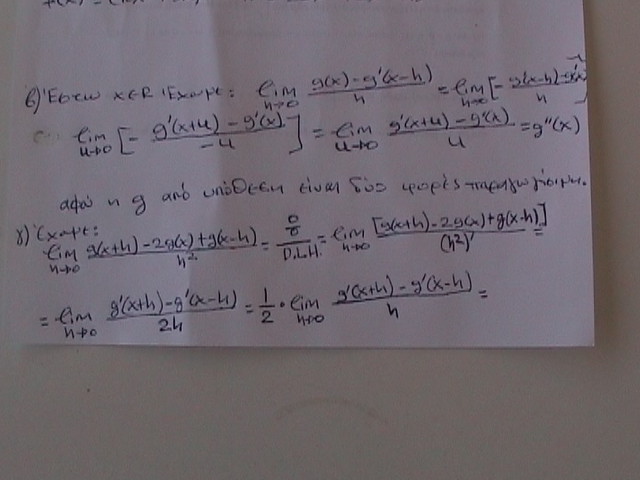 β) Έστω x∈R. Έχουμε: lim h→0 g(x) - g'(x-h) / h = lim h→0 [- g'(x-h) - g'(x) / h ]
lim u→0 [- g'(x+u) - g'(x) / -u ] = lim u→0 g'(x+u) - g'(x) / u = g''(x)
αφού η g από υπόθεση είναι δύο φορές παραγωγίσιμη.
γ) Έχουμε:
lim h→0 g(x+h) - 2g(x) + g(x-h) / h² = 0/0 D.L.H. = lim h→0 [g(x+h) - 2g(x) + g(x-h)]' / (h²)' =
= lim h→0 g'(x+h) - g'(x-h) / 2h = 1/2 · lim h→0 g'(x+h) - g'(x-h) / h =